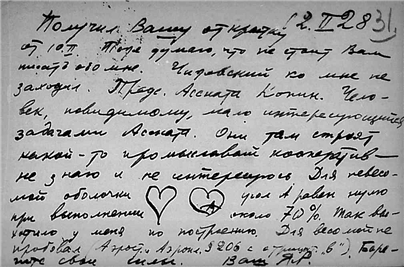 Получил Вашу открытку (2.II 28
от 10 II Тоже думаю, что не стоит Вам
писать обо мне. ко мне не
заходил. Предс. Ассната Копин. Чело-
век, повидимому, мало интересующийся
задачами Ассната. Они там строят
какой-то промысловый кооператив–
не знаю и не интересуюсь Для невесо-
мой оболочки угол A равен нулю
при выполнении около 70%. Так вы-
ходило у меня по построению. Для весомой не
пробовал Аэрост. § 206 с Бере-
гите свои силы. Ваш